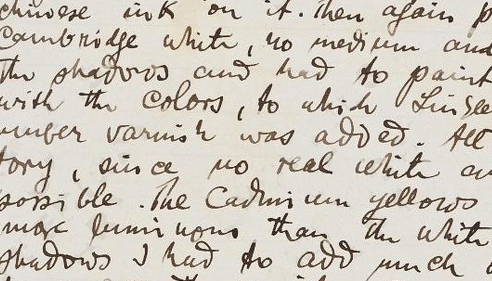 chinese ink on it. then again p
Cambridge white, no medium and
the shadows and had to paint
with the colors, to which Linsee
umber varnish was added. All
tory, since no real white
possible. The Cadmium yellows
more luminous than the white
shadows I had to add much